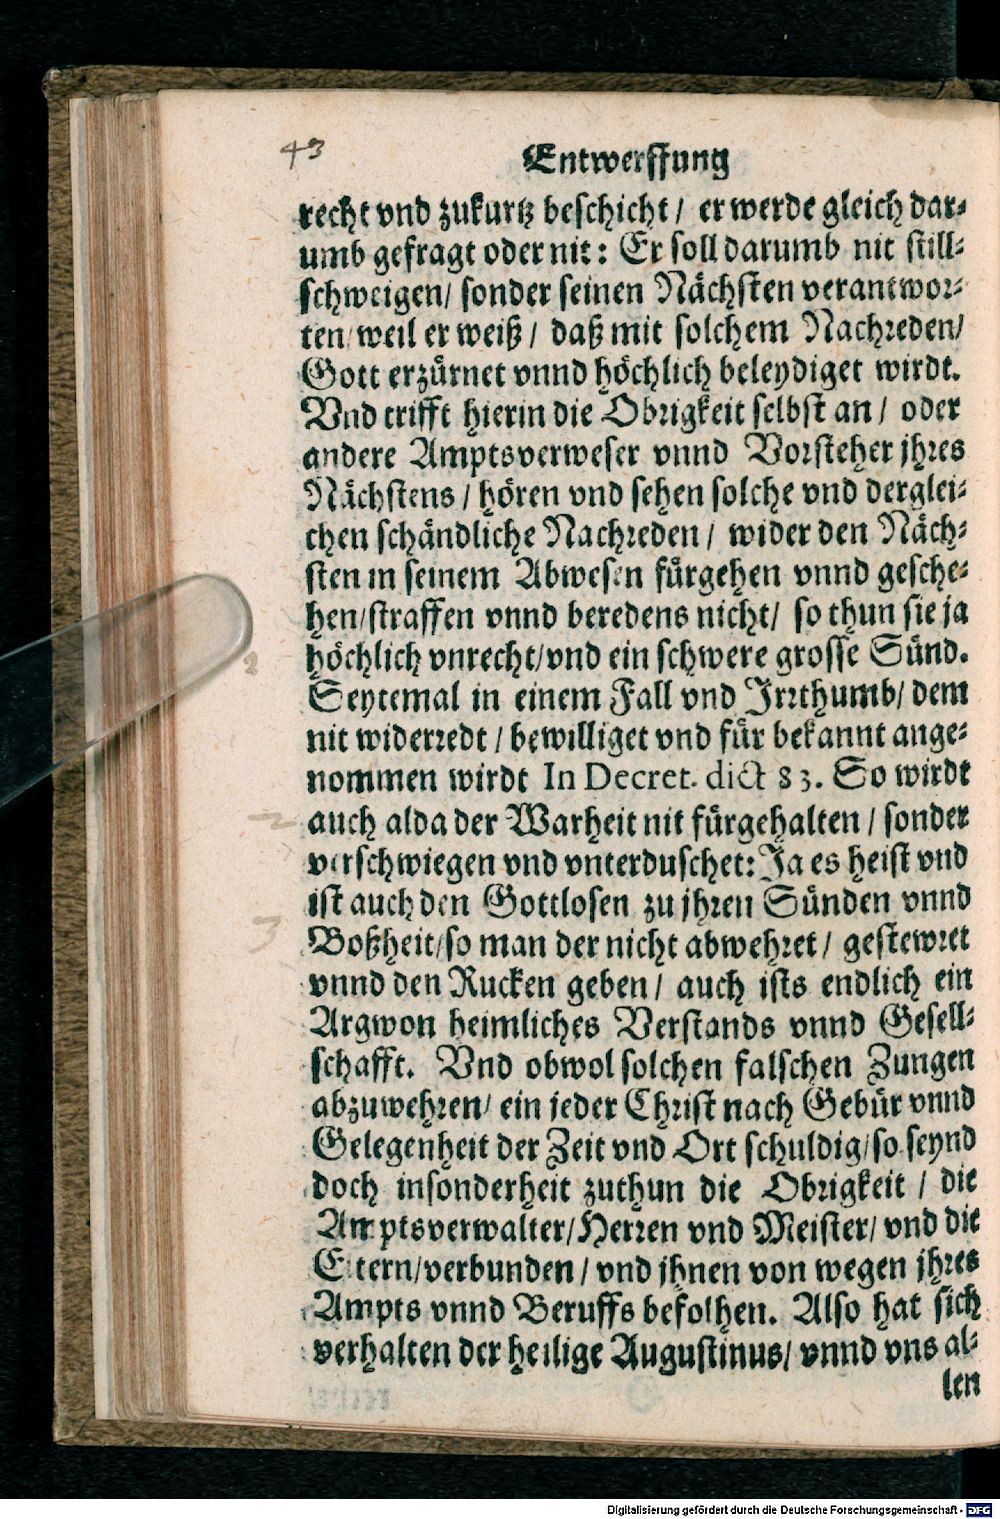 43
Entwerffung
recht vnd zukurtz beschicht / er werde gleich dar-
umb gefragt oder nit: Er soll darumb nit still-
schweigen / sonder seinen Nächsten verantwor-
ten / weil er weiß / daß mit solchem Nachreden /
Gott erzürnet vnnd höchlich beleydiget wirdt.
Vnd trifft hierin die Obrigkeit selbst an / oder
andere Amptsverweser vnnd Vorsteher jhres
Nächstens / hören vnd sehen solche vnd derglei-
chen schändliche Nachreden / wider den Näch-
sten in seinem Abwesen fürgehen vnnd gesche-
hen / straffen vnnd beredens nicht / so thun sie ja
höchlich vnrecht / vnd ein schwere grosse Sünd.
Seytemal in einem Fall vnd Irrthumb / dem
nit widerredt / bewilliget vnd für bekannt ange-
nommen wirdt In Decret. dict 83. So wirdt
auch alda der Warheit nit fürgehalten / sonder
verschwiegen vnd vnterduschet: Ja es heist vnd
ist auch den Gottlosen zu jhren Sünden vnnd
Boßheit / so man der nicht abwehret / gestewret
vnnd den Rucken geben / auch ists endlich ein
Argwon heimliches Verstands vnnd Gesell-
schafft. Vnd obwol solchen falschen Zungen
abzuwehren / ein jeder Christ nach Gebür vnnd
Gelegenheit der Zeit vnd Ort schuldig / so seynd
doch insonderheit zuthun die Obrigkeit / die
Amptsverwalter / Herren vnd Meister / vnd die
Eltern / verbunden / vnd jhnen von wegen jhres
Ampts vnnd Beruffs befolhen. Also hat sich
verhalten der heilige Augustinus / vnnd vns al-
len
2
2
3
Digitalisierung gefördert durch die Deutsche Forschungsgemeinschaft - DFG